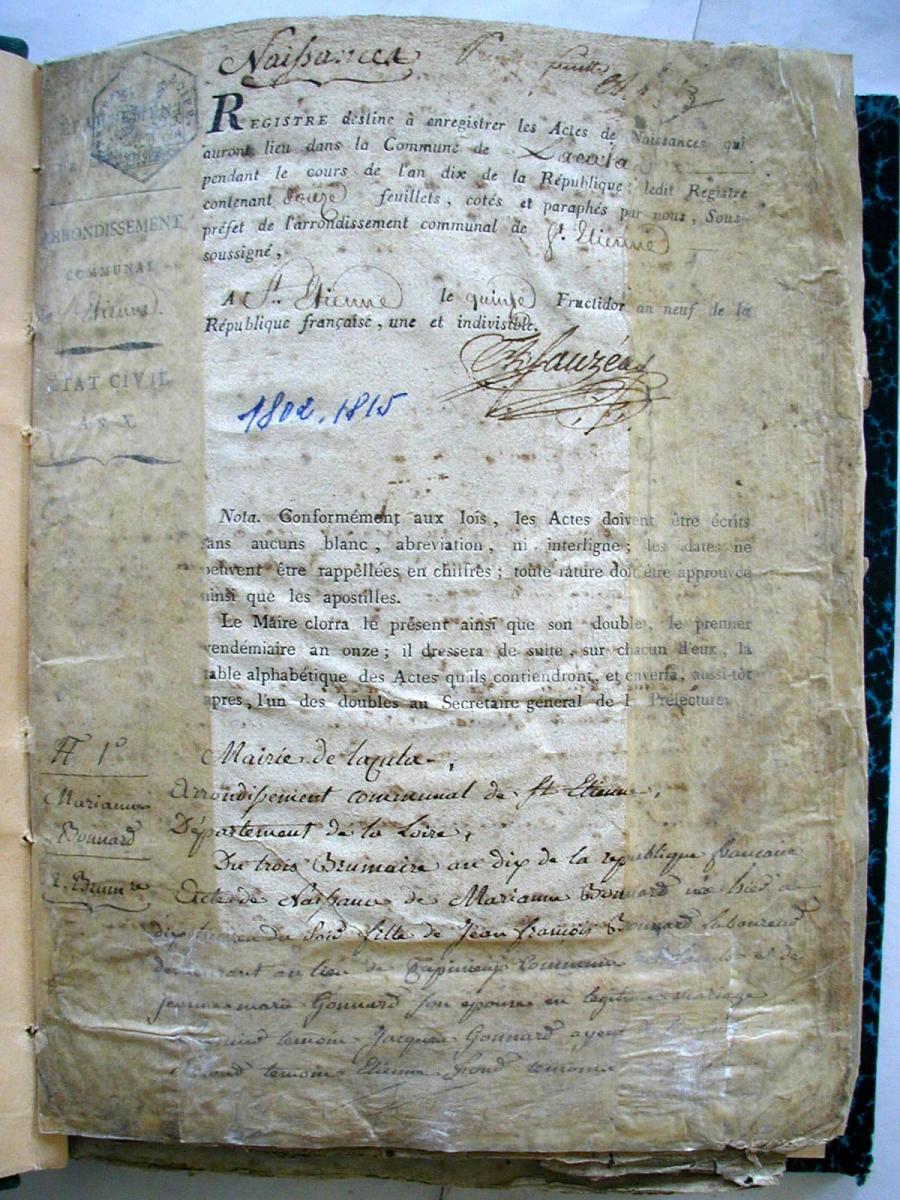 Naissances
feuille
REGISTRE destiné à enregistrer les Actes de Naissances qui
auront lieu dans la Commune de Lacula
pendant le cours de l'an dix de la République ; ledit Registre
contenant douze feuillets, cotés et paraphés par nous, Sous-
préfet de l'arrondissement communal de St. Etienne
soussigné,
A St. Etienne le quinze Fructidor an neuf de la
République française, une et indivisible.
Sauzéas
DÉPARTEMENT
ARRONDISSEMENT
COMMUNAL
Etienne.
ÉTAT CIVIL
AN X
1802. 1815
Nota. Conformément aux lois, les Actes doivent être écrits
ans aucuns blanc, abreviation, ni interligne ; les dates ne
peuvent être rappellées en chiffres ; toute rature doit être approuvée
ainsi que les apostilles.
Le Maire clorra le présent ainsi que son double, le premier
vendémiaire an onze ; il dressera de suite, sur chacun d'eux, la
table alphabétique des Actes qu'ils contiendront, et enverra, aussi-tôt
apres, l'un des doubles au Secrétaire général de l Préfecture.
N 1o
Marianne
Bonnard
Brum re
Mairie de lacula,
Arrondissement communal de St Etienne,
Département de la Loire,
Du trois Brumaire an dix de la republique francaise
Acte de Naissance de Marianne Bonnard née hier a
du soir fille de Jean francois Bonnard laboureur
demeurant au lieu de Tapinieux Commune de et de
jeanne marie Gonnard son épouse en legitime mariage
temoin Jacques Gonnard
second temoin Etienne temoin